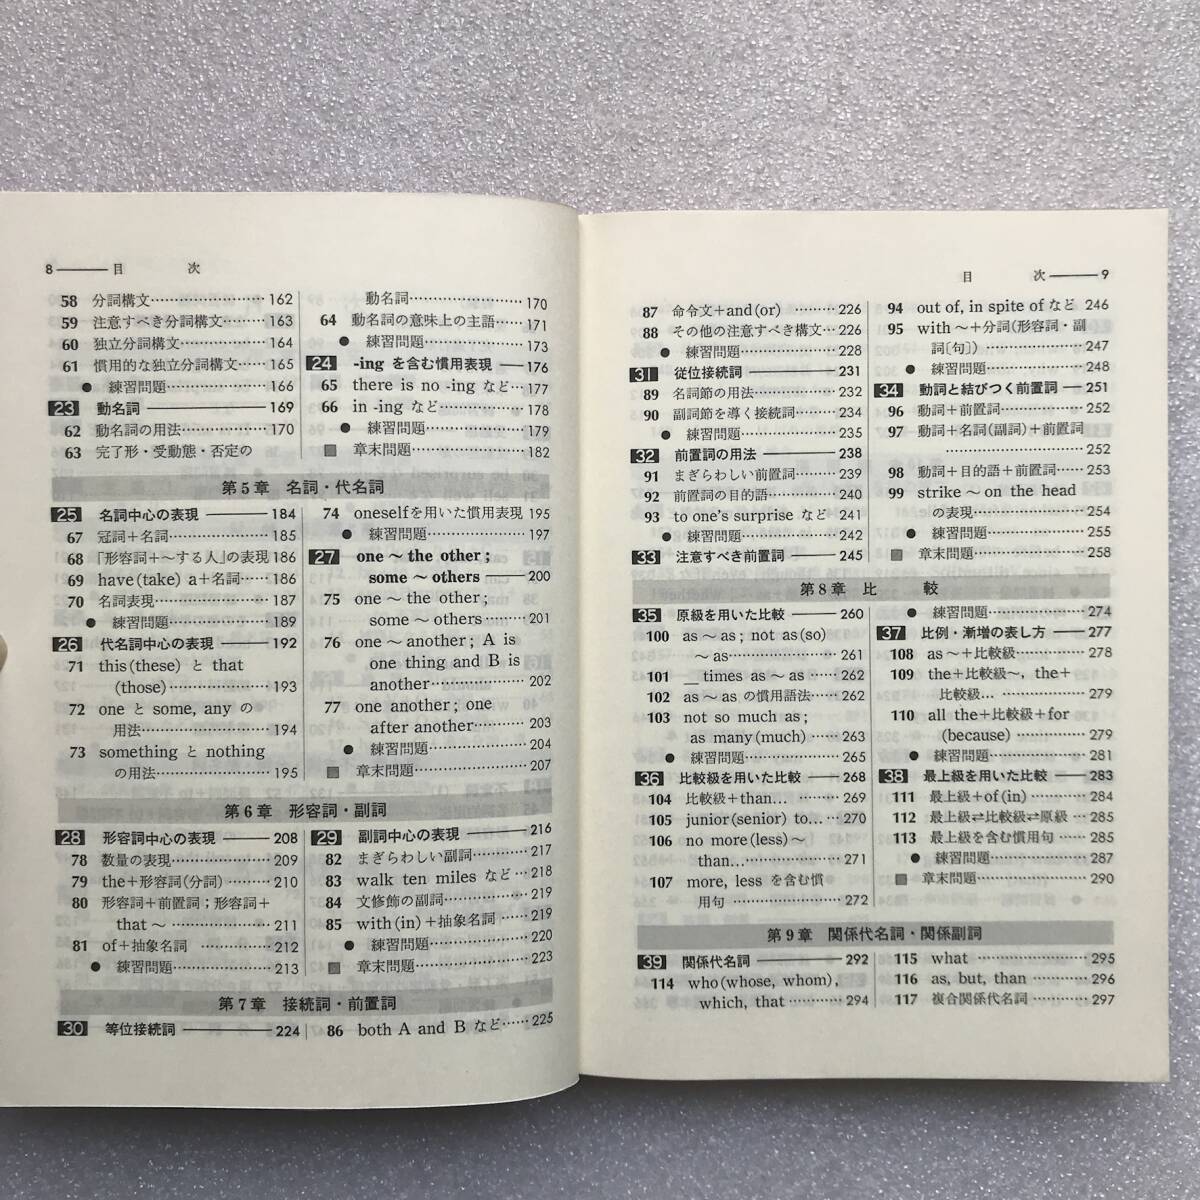 8 目 次
58 分詞構文………………162
59 注意すべき分詞構文………163
60 独立分詞構文……………164
61 慣用的な独立分詞構文……165
● 練習問題………………166
23 動名詞 169
62 動名詞の用法……………170
63 完了形・受動態・否定の
動名詞……………………170
64 動名詞の意味上の主語……171
● 練習問題………………173
24 -ing を含む慣用表現 176
65 there is no -ing など…177
66 in -ing など……………178
● 練習問題………………179
■ 章末問題………………182
第5章 名詞・代名詞
25 名詞中心の表現 184
67 冠詞+名詞………………185
68 「形容詞+〜する人」の表現 186
69 have(take) a+名詞……186
70 名詞表現…………………187
● 練習問題………………189
26 代名詞中心の表現 192
71 this(these) と that
(those)………………193
72 one と some, any の
用法……………………194
73 something と nothing
の用法…………………195
74 oneselfを用いた慣用表現 195
● 練習問題………………197
27 one 〜 the other ;
some 〜 others 200
75 one 〜 the other ;
some 〜 others…………201
76 one 〜 another ; A is
one thing and B is
another…………………202
77 one another ; one
after another…………203
● 練習問題………………204
■ 章末問題………………207
第6章 形容詞・副詞
28 形容詞中心の表現 208
78 数量の表現………………209
79 the+形容詞(分詞)………210
80 形容詞+前置詞 ; 形容詞+
that 〜…………………211
81 of+抽象名詞……………212
● 練習問題………………213
29 副詞中心の表現 216
82 まぎらわしい副詞…………217
83 walk ten miles など…218
84 文修飾の副詞……………219
85 with(in)+抽象名詞……219
● 練習問題………………220
■ 章末問題………………223
第7章 接続詞・前置詞
30 等位接続詞 224
86 both A and B など……225
目 次 9
87 命令文+and(or)………226
88 その他の注意すべき構文…226
● 練習問題………………228
31 従位接続詞 231
89 名詞節の用法……………233
90 副詞節を導く接続詞………234
● 練習問題………………235
32 前置詞の用法 238
91 まぎらわしい前置詞………239
92 前置詞の目的語…………240
93 to one's surprise など 241
● 練習問題………………242
33 注意すべき前置詞 245
94 out of, in spite of など 246
95 with 〜+分詞(形容詞・副
詞〔句〕)…………………247
● 練習問題………………248
34 動詞と結びつく前置詞 251
96 動詞+前置詞……………252
97 動詞+名詞(副詞)+前置詞
……………252
98 動詞+目的語+前置詞……253
99 strike 〜 on the head
の表現…………………254
● 練習問題………………255
■ 章末問題………………258
第8章 比 較
35 原級を用いた比較 260
100 as 〜 as ; not as(so)
〜 as……………………261
101 _ times as 〜 as ……262
102 as 〜 as の慣用語法……262
103 not so much as ;
as many(much)………263
● 練習問題………………265
36 比較級を用いた比較 268
104 比較級+than… ………269
105 junior(senior) to……270
106 no more(less)〜
than………………………271
107 more, less を含む慣
用句………………………272
● 練習問題………………274
37 比例・漸増の表し方 277
108 as〜+比較級……………278
109 the+比較級〜, the+
比較級… ………………279
110 all the+比較級+for
(because) ……………279
● 練習問題………………281
38 最上級を用いた比較 283
111 最上級+of(in)…………284
112 最上級⇄比較級⇄原級…285
113 最上級を含む慣用句……285
● 練習問題………………287
■ 章末問題………………290
第9章 関係代名詞・関係副詞
39 関係代名詞 292
114 who(whose, whom),
which, that……………294
115 what ……………………295
116 as, but, than …………296
117 複合関係代名詞…………297